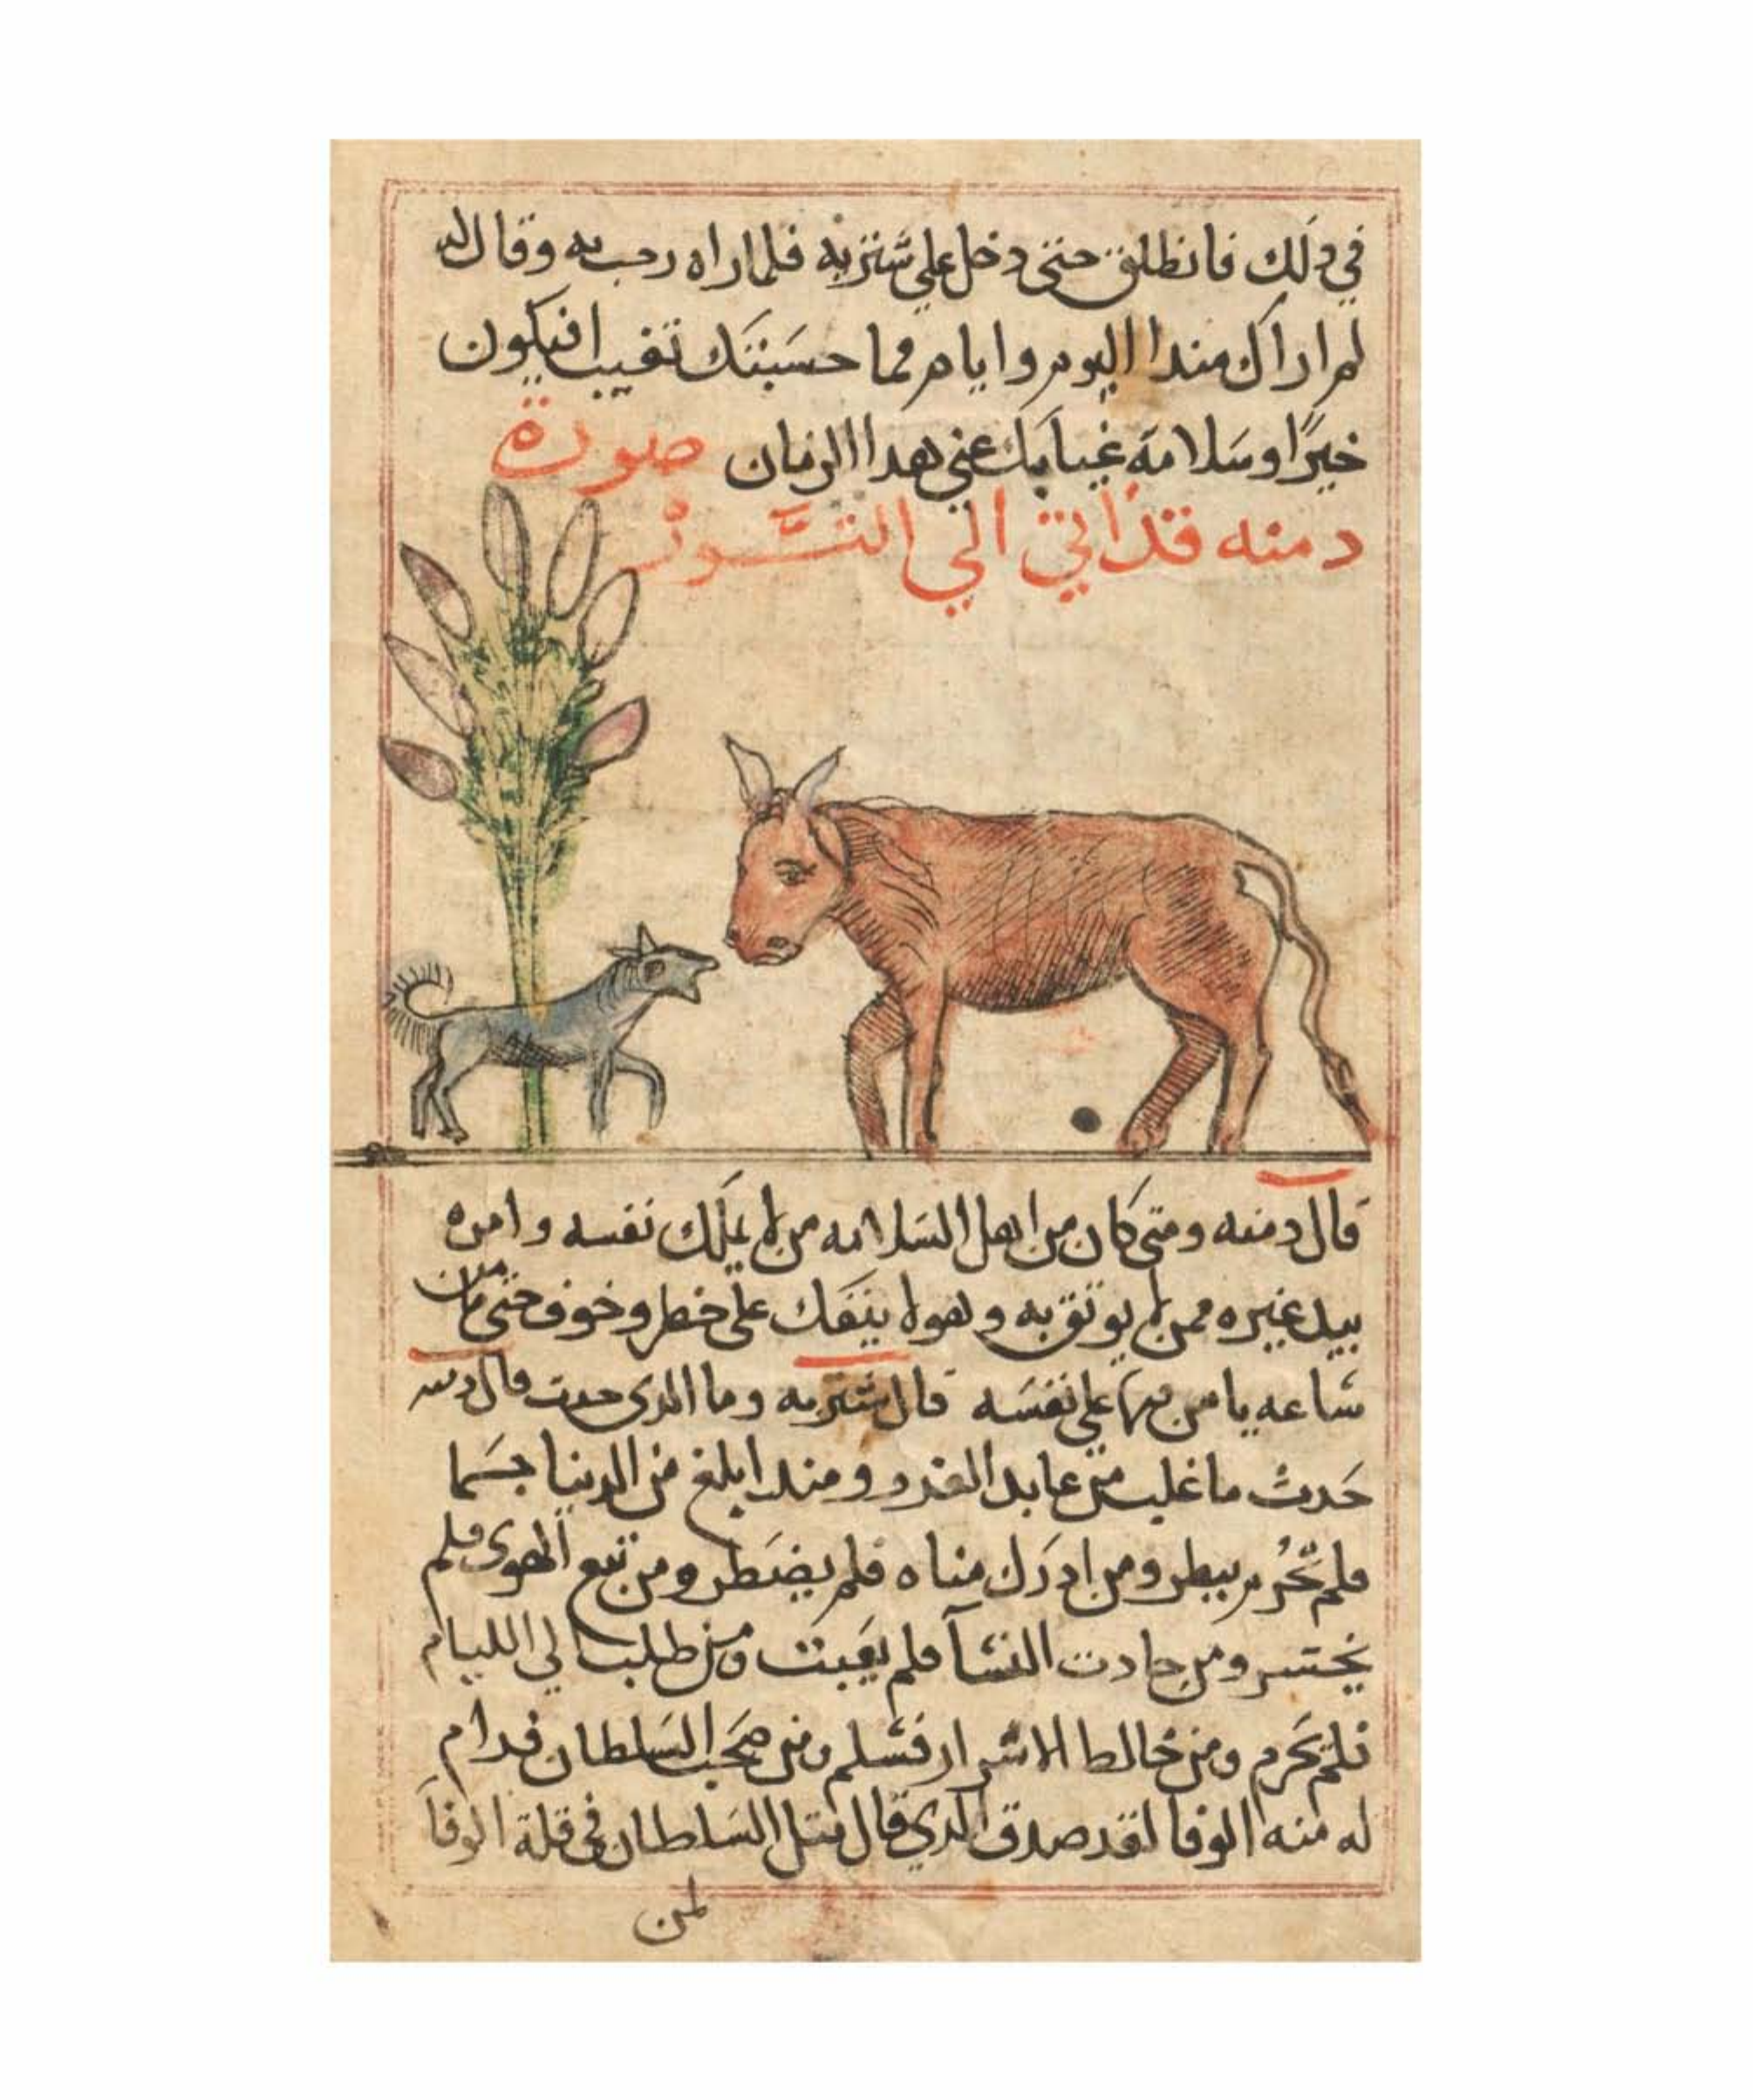 في دلك فانطلق حتي دخل علي شتربه فلما راه رحب به وقال له
لم اراك مند اليوم وايام فما حسبتك تغيب افيكون
خيرًا وسَلامة غيابك عني هدا الزمان صورة
دمنه قد اتي الي الثور
قال دمنه ومتي كان من اهل السَلامه من لم يملك نفسه وامره
بيد غيره ممن لم يوثق به وهو لا ينفك علي خطر وخوف حتي ما من
ساعه يامن فيها علي نفسَه قال شتربه وما الدي حدت قال
حَدث ما غلب من القدر ومن ابلغ من الدنيا جسَما
فلم يبطر ومن ادرَك مناه فلم ومن تبع الهوي فلم
يختسر ومن حادت النسا فلم ومن طلب الي الليام
فلم يحرم ومن خالط الاشرار فسَلم ومن صحب السَلطان فدام
له منه الوفا لقد صدق الدي قال متل السَلطان في قلة الوفا
لمن